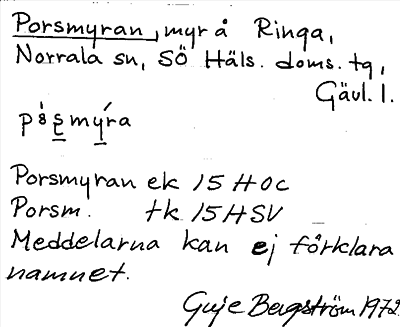 Porsmyran, myr å Ringa,
Norrala sn, SÖ Häls. doms. tg,
Gävl. l.
Porsmyran ek 15 H 0c
Porsm. tk 15 H SV
Meddelarna kan ej förklara
namnet.
Guje Bergström 1972.